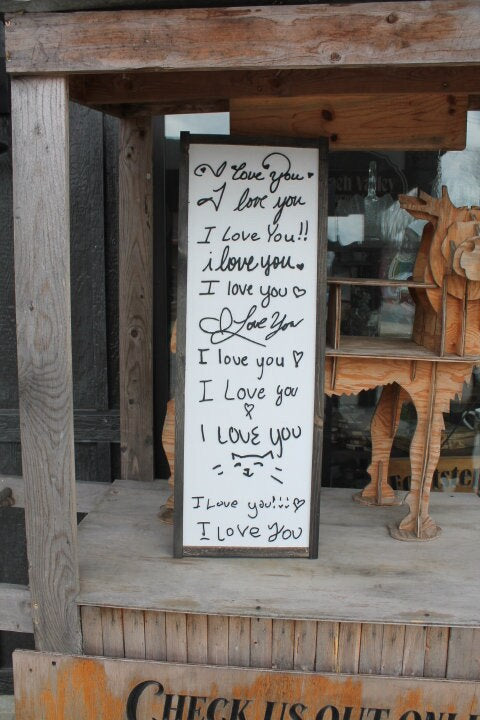 I Love You
I love you
I Love You!!
i love you
I love you
I Love You
I love you
I Love you
I LOVE yOU
I Love you!!!
I Love You
CHECK US OUT ONLI